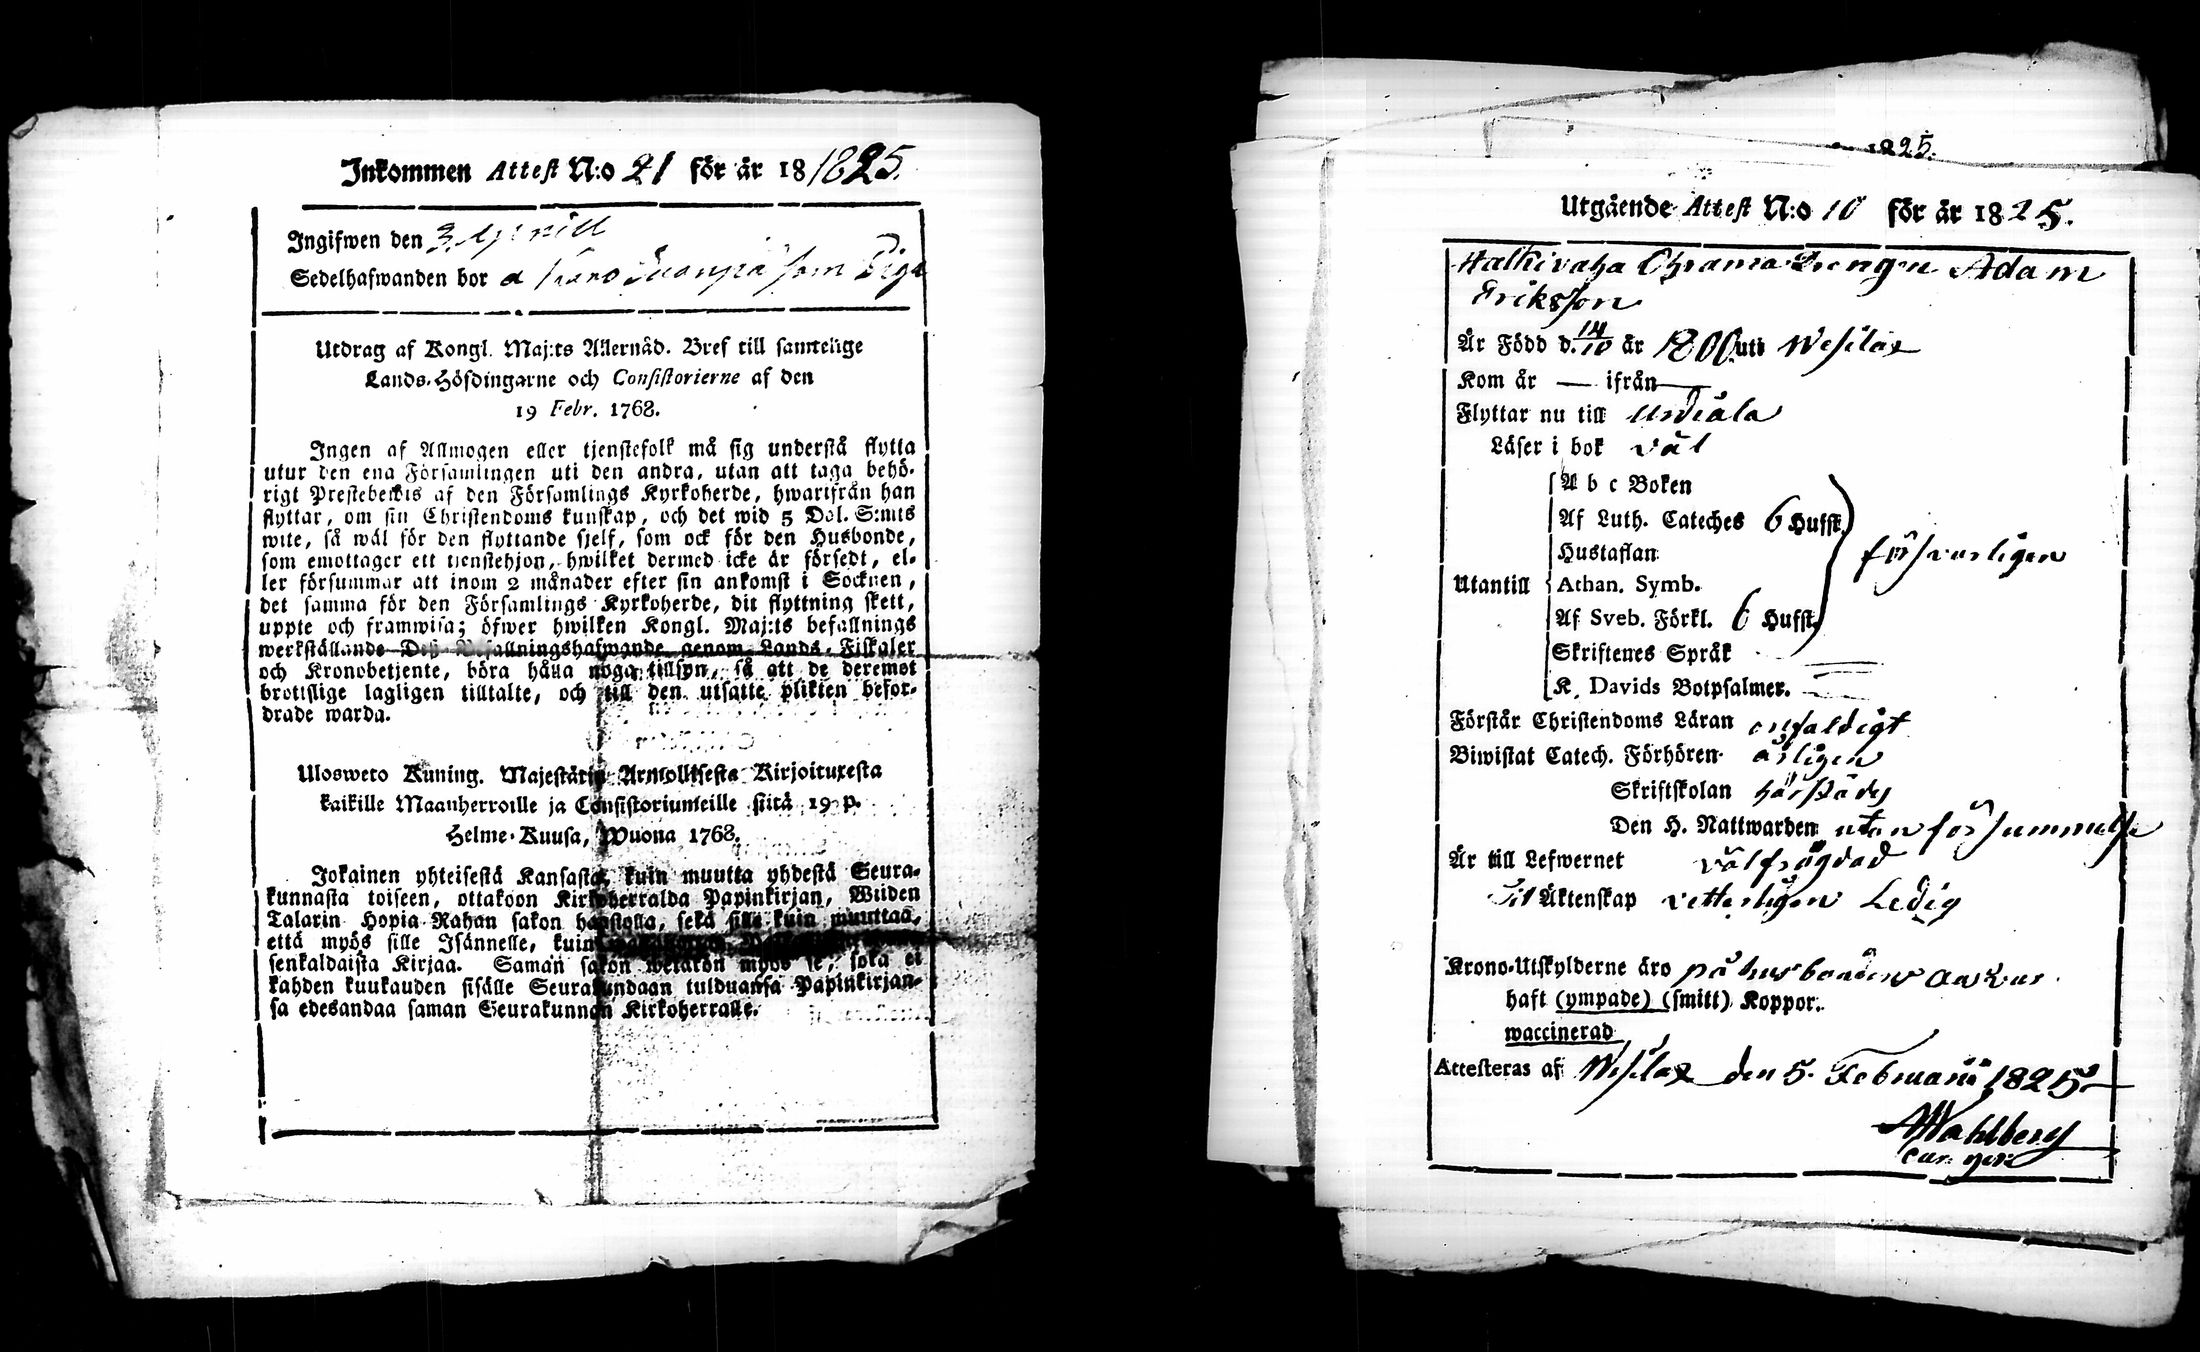 Inkommen Attest N:o 21 för år 18 1825.
Ingifwen den 3 Aprill
Sedelhafwanden bor å som Piga
Utdrag af Kongl. Maj:ts Allernåd. Bref till samtelige
Lands-Höfdingarne och Consistorierne af den
19 Febr. 1768.
Ingen af Allmogen eller tjenstefolk må sig understå flytta
utur den ena Församlingen uti den andra, utan att taga behö-
rigt Prestebewis af den Församlings Kyrkoherde, hwarifrån han
flyttar, om sin Christendoms kunskap, och det wid 5 Dal. S:mts
wite, så wäl för den flyttande sjelf, som ock för den Husbonde,
som emottager ett tjenstehjon, hwilket dermed icke är försedt, el-
ler försummar att inom 2 månader efter sin ankomst i Socknen,
det samma för den Församlings Kyrkoherde, dit flyttning skett,
uppte och framwisa; öfwer hwilken Kongl. Maj:ts befallnings
werkställande Deß Befallningshafwande genom Lands-Fiskaler
och Kronobetjente, böra hålla noga tillsyn, så att de deremot
brottslige lagligen tilltalte, och till den utsatte plikten befor-
drade warda.
Ulosweto Kuning. Majestätin Armollisesta Kirjoituxesta
kaikille Maanherroille ja Consistoriumeille siitä 19 p.
Helme-Kuusa, Wuona 1768.
Jokainen yhteisestä Kansasta, kuin muutta yhdestä Seura-
kunnasta toiseen, ottakoon Kirkoherralda Papinkirjan, Wiiden
Talarin Hopia-Rahan sakon haastolla, sekä sille kuin muuttaa,
että myös sille Isännelle, kuin
senkaldaista Kirjaa. Saman sakon wetäkön myös se, joka ei
kahden kuukauden sisälle Seurakundaan tulduansa Papinkirjan-
sa edesandaa saman Seurakunnan Kirkoherralle.
1825.
Utgående Attest N:o 10 för år 1825.
Halkivaha Adam
Eriksson
Är Född d. 14/10 år 1800 uti Wesilax
Kom år — ifrån —
Flyttar nu till Urdiala
Läser i bok väl
A b c Boken
Af Luth. Cateches 6 Hufst.
Hustaflan
Utantill Athan. Symb. försvarligen
Af Sveb. Förkl. 6 Hufst.
Skriftenes Språk
K. Davids Botpsalmer.
Förstår Christendoms Läran enfaldigt
Biwistat Catech. Förhören årligen
Skriftskolan härstädes
Den H. Nattwarden utan försummelse
Är till Lefwernet välfrägdad
Till Äktenskap vetterligen Ledig
Krono-Utskylderne äro på husbondens answar
haft (ympade) (smitt) Koppor.
waccinerad
Attesteras af Wesilax den 5. Februarii 1825
Wahlberg